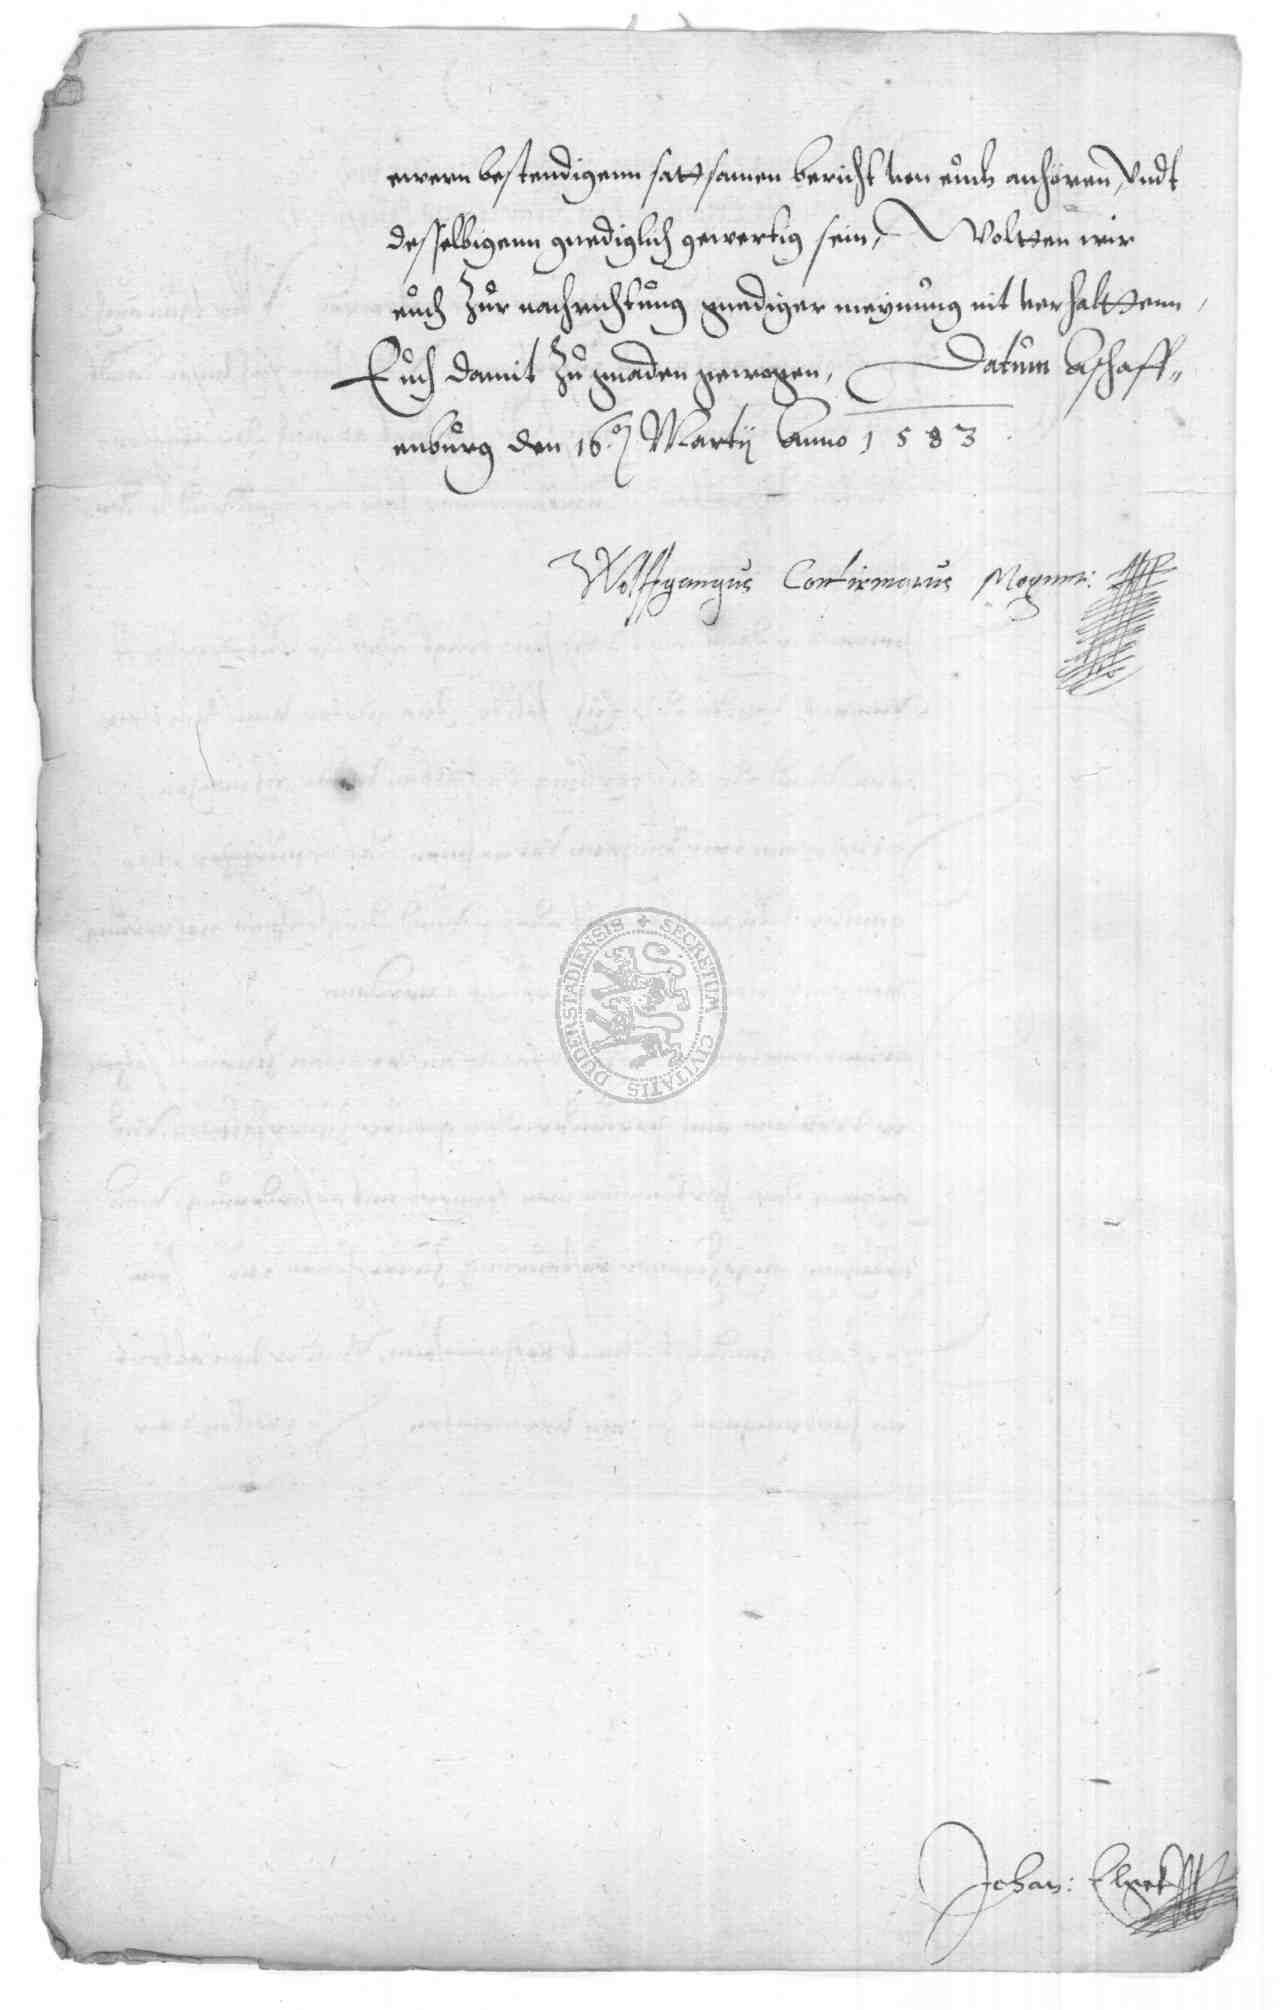 ewern bestendigenn sattsamen bericht von euch anhören, Undt
desselbigenn gnediglich gewertig sein, Woltten wir
euch Zur nachrichtung gnediger meynung nit verhalttenn,
Euch damit Zu gnaden gewogen, Datum Aschaff„
enburg den 16. Martij Anno 1583
Wolffgangus Confirmatus Mogunt:
SECRETUM CIVITATIS DUDERSTADIENSIS
Johan: